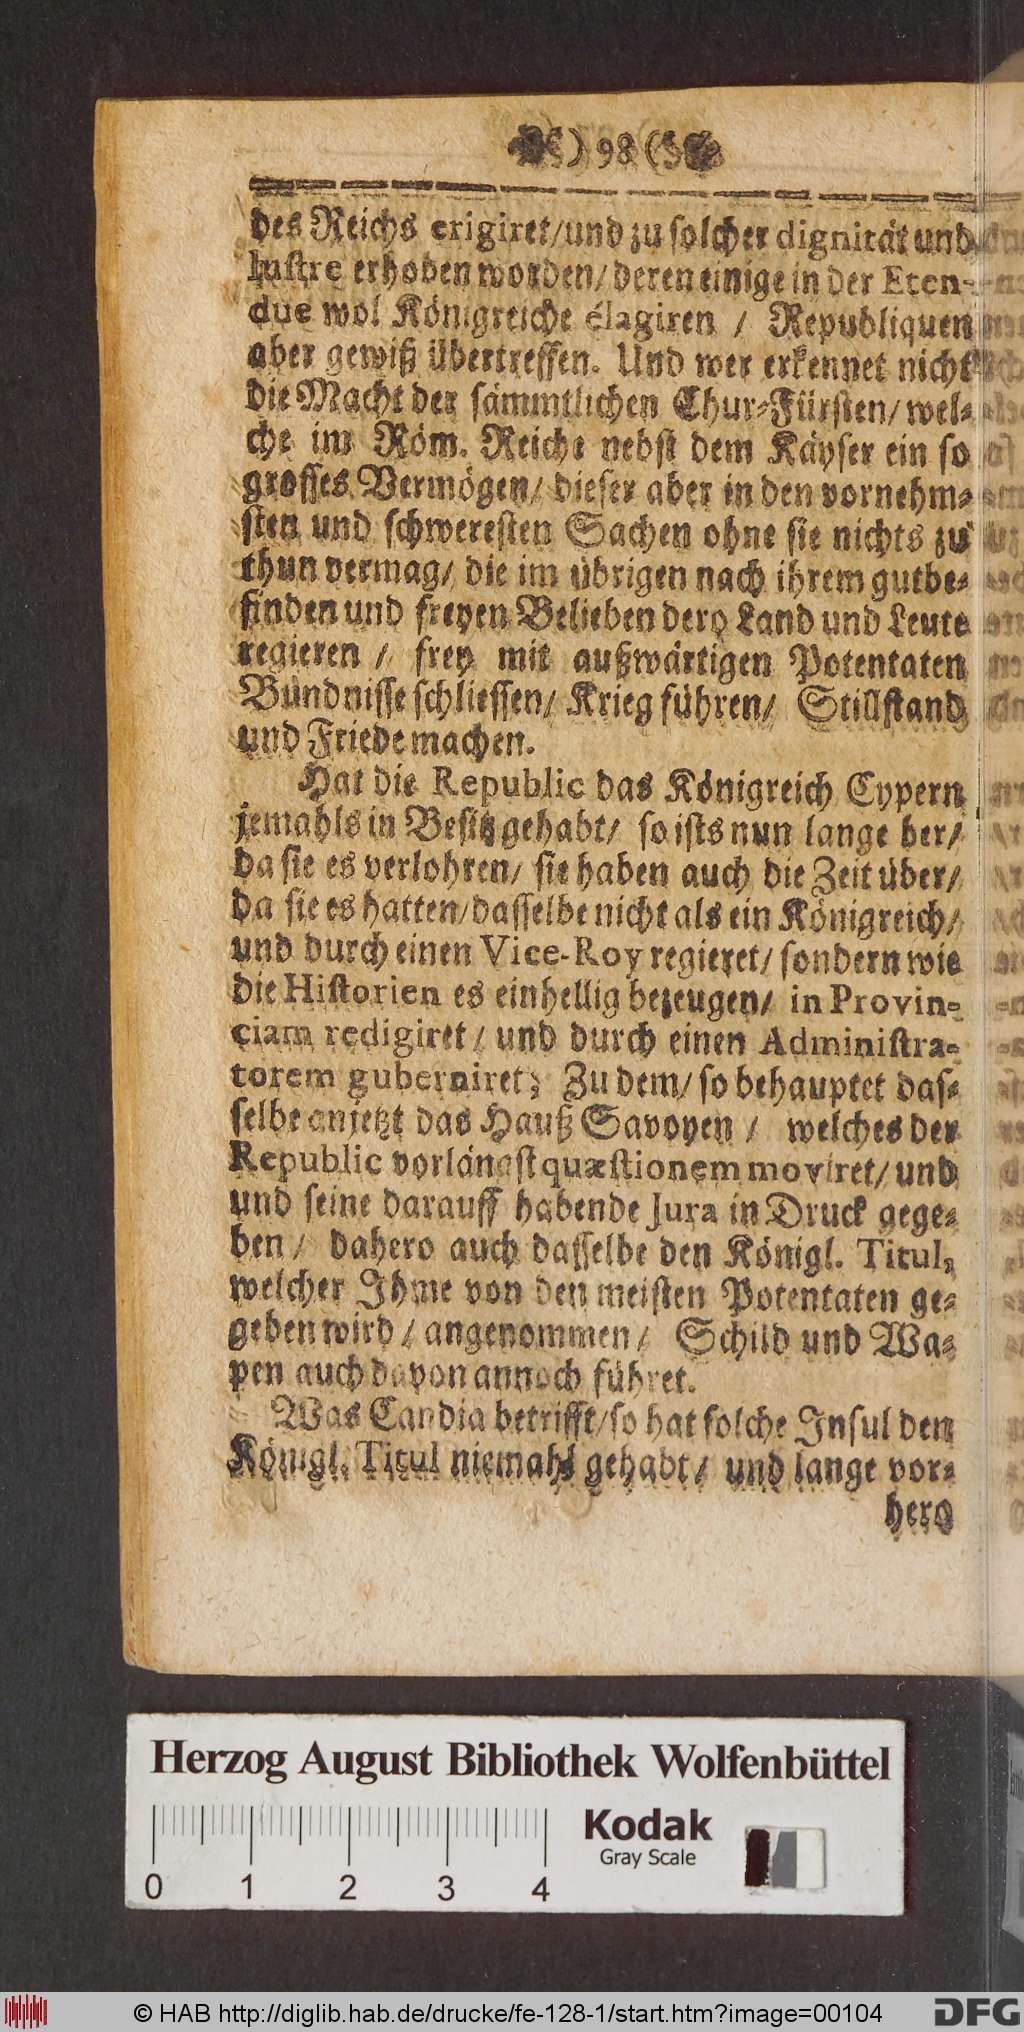 ) 98 (
des Reichs erigiret/und zu solcher dignität und
lustre erhoben worden/ deren einige in der Eten-
due wol Königreiche élagiren / Republiquen
aber gewiß übertreffen. Und wer erkennet nicht
die Macht der sämmtlichen Chur-Fürsten/ wel-
che im Röm. Reiche nebst dem Käyser ein so
grosses Vermögen/ dieser aber in den vornehm-
sten und schweresten Sachen ohne sie nichts zu
thun vermag/ die im übrigen nach ihrem gutbe-
finden und freyen Belieben dero Land und Leute
regieren / frey mit außwärtigen Potentaten
Bündnisse schliessen/ Krieg führen/ Stillstand
und Friede machen.
Hat die Republic das Königreich Cypern
jemahls in Besitz gehabt/ so ists nun lange her/
da sie es verlohren/ sie haben auch die Zeit über/
da sie es hatten/dasselbe nicht als ein Königreich/
und durch einen Vice-Roy regieret/ sondern wie
die Historien es einhellig bezeugen/ in Provin-
ciam redigiret / und durch einen Administra-
torem guberniret; Zu dem/ so behauptet das-
selbe anjetzt das Hauß Savoyen / welches der
Republic vorlängst quæstionem moviret/ und
und seine darauff habende Jura in Druck gege-
ben / dahero auch dasselbe den Königl. Titul,
welcher Ihme von den meisten Potentaten ge-
geben wird / angenommen / Schild und Wa-
pen auch davon annoch führet.
Was Candia betrifft/so hat solche Insul den
Königl. Titul niemahl gehabt / und lange vor-
hero
Herzog August Bibliothek Wolfenbüttel
Kodak
Gray Scale
0 1 2 3 4
© HAB http://diglib.hab.de/drucke/fe-128-1/start.htm?image=00104
DFG